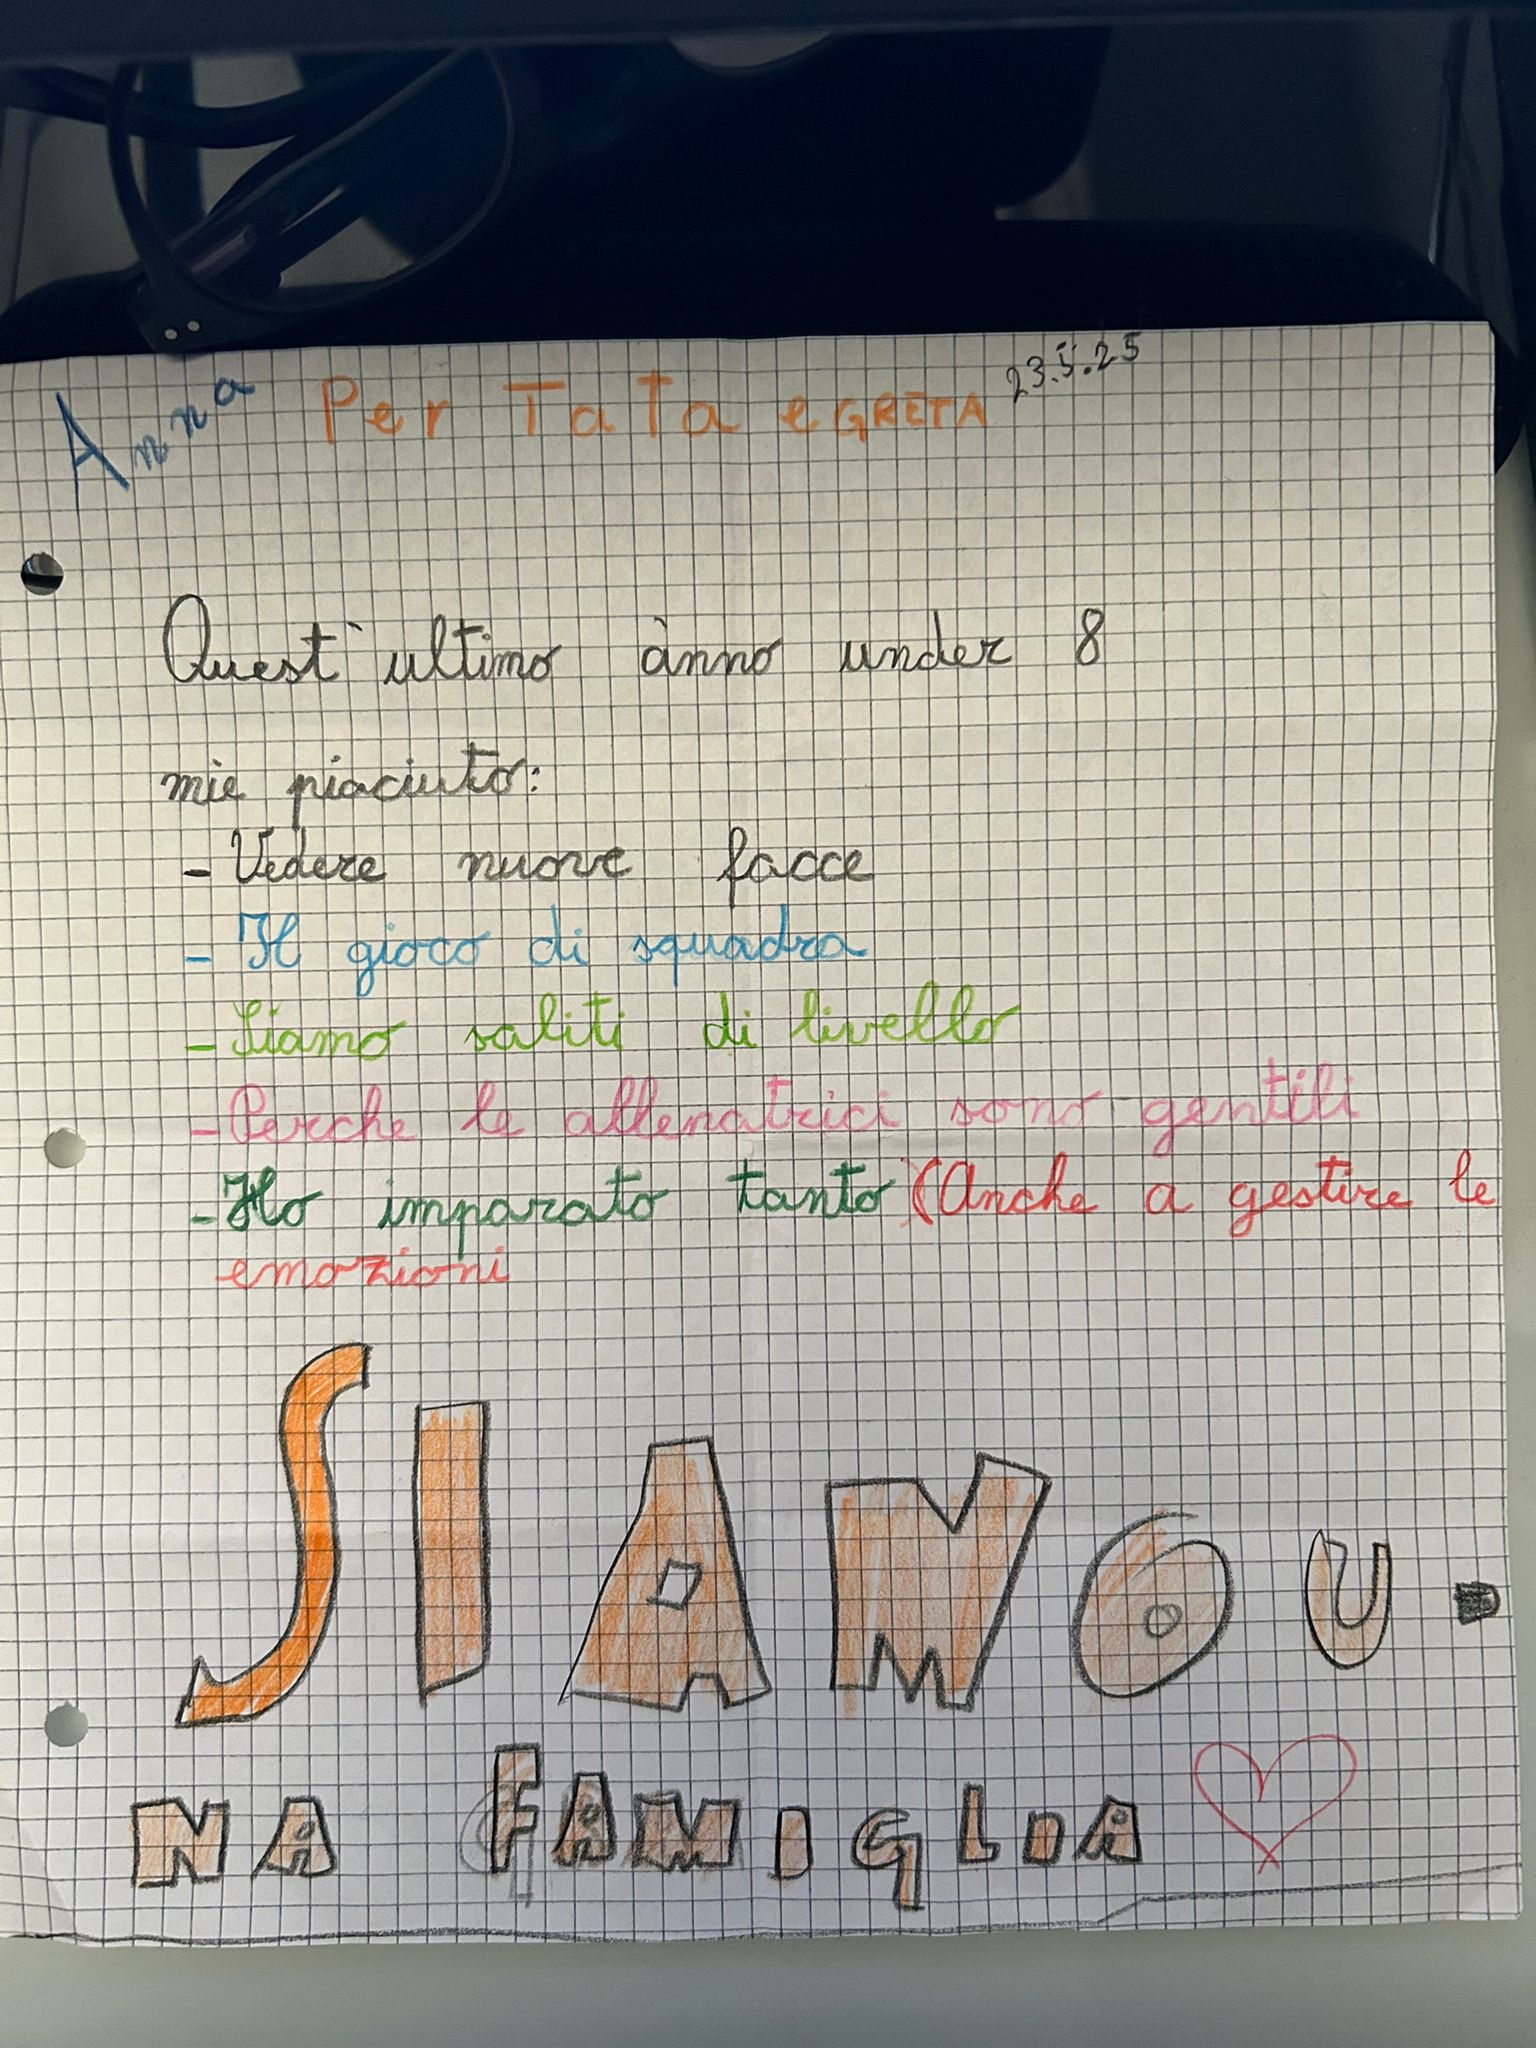 Anna Per Tata e GRETA 23.5.25
Quest'ultimo anno under 8
mie piaciuto:
- Vedere nuove facce
- Il gioco di squadra
- Siamo saliti di livello
- Perche le allenatrici sono gentili
- Ho imparato tanto (Anche a gestire le
emozioni
SIAMO U-
NA FAMIGLIA